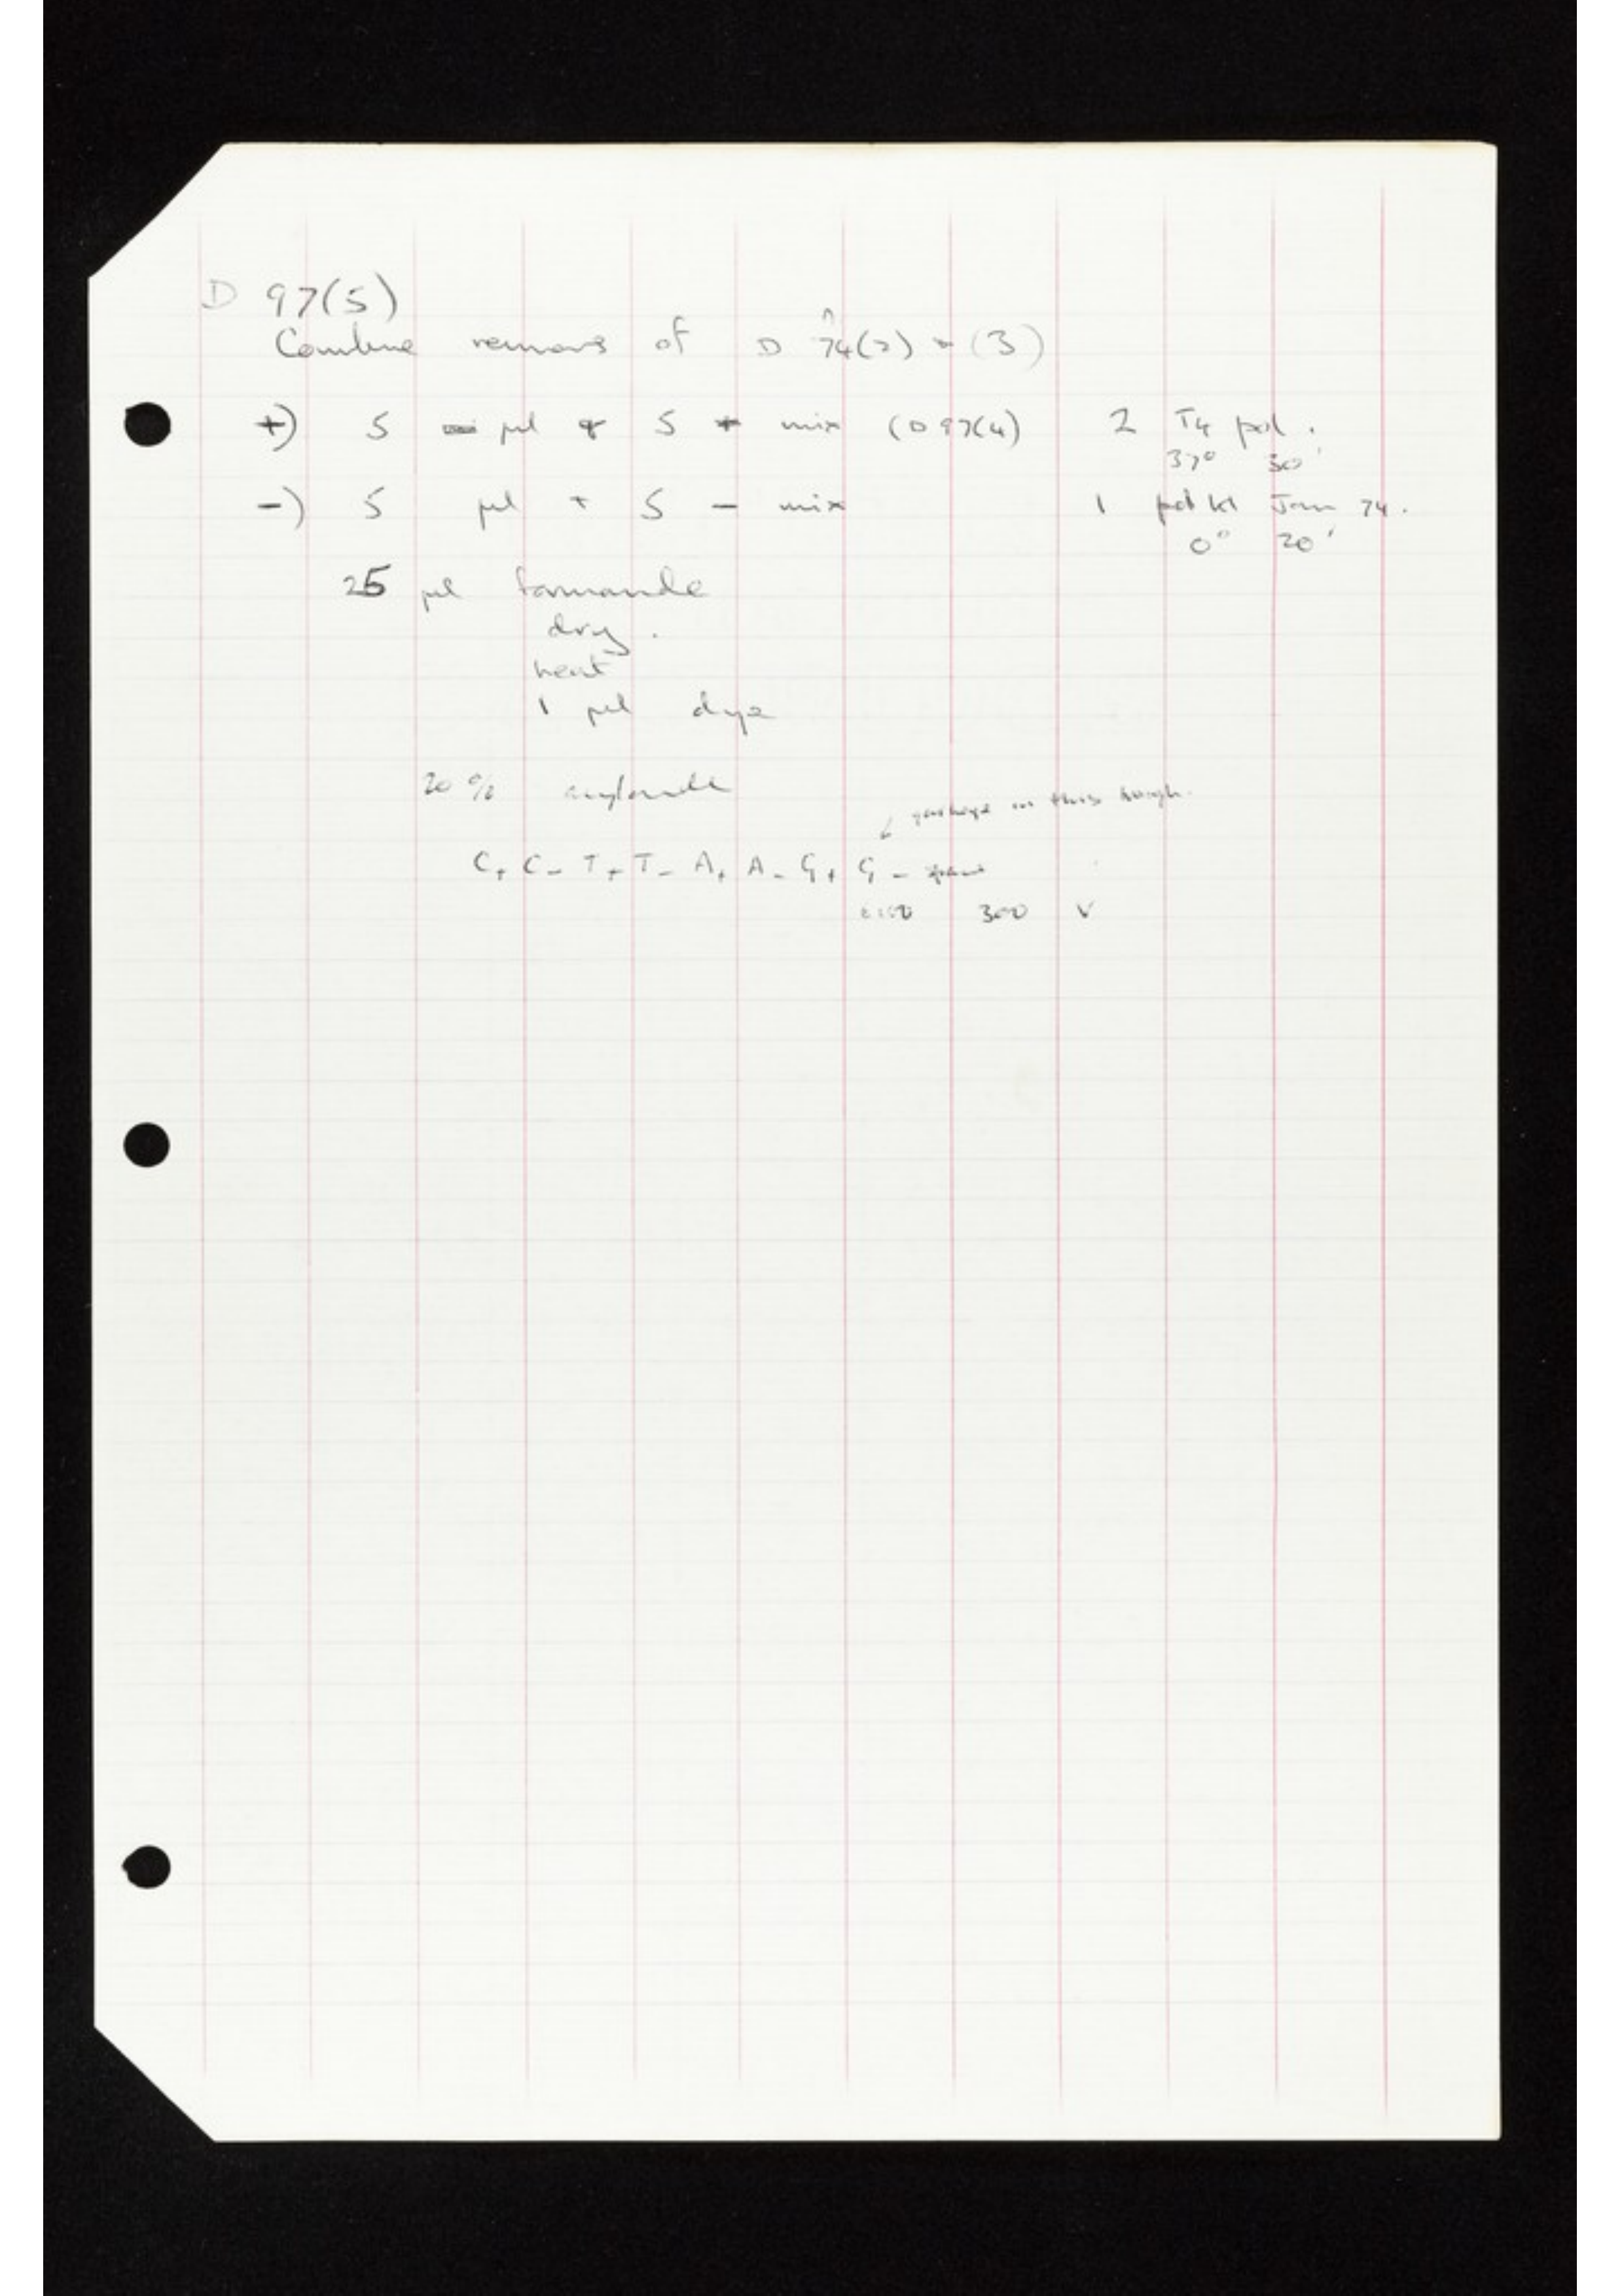 D 97(5)
Combine remains of D 74(2) + (3)
+) 5 µl + 5 + mix (D 97(4) 2 T4 pol.
37° 30'
-) 5 µl + 5 - mix 1 pol Kl Jan 74.
0° 20'
25 µl formamide
dry.
heat
1 µl dye
20% acylamide
garbage in this trough.
C+ C- T+ T- A+ A- G+ G-
300 V